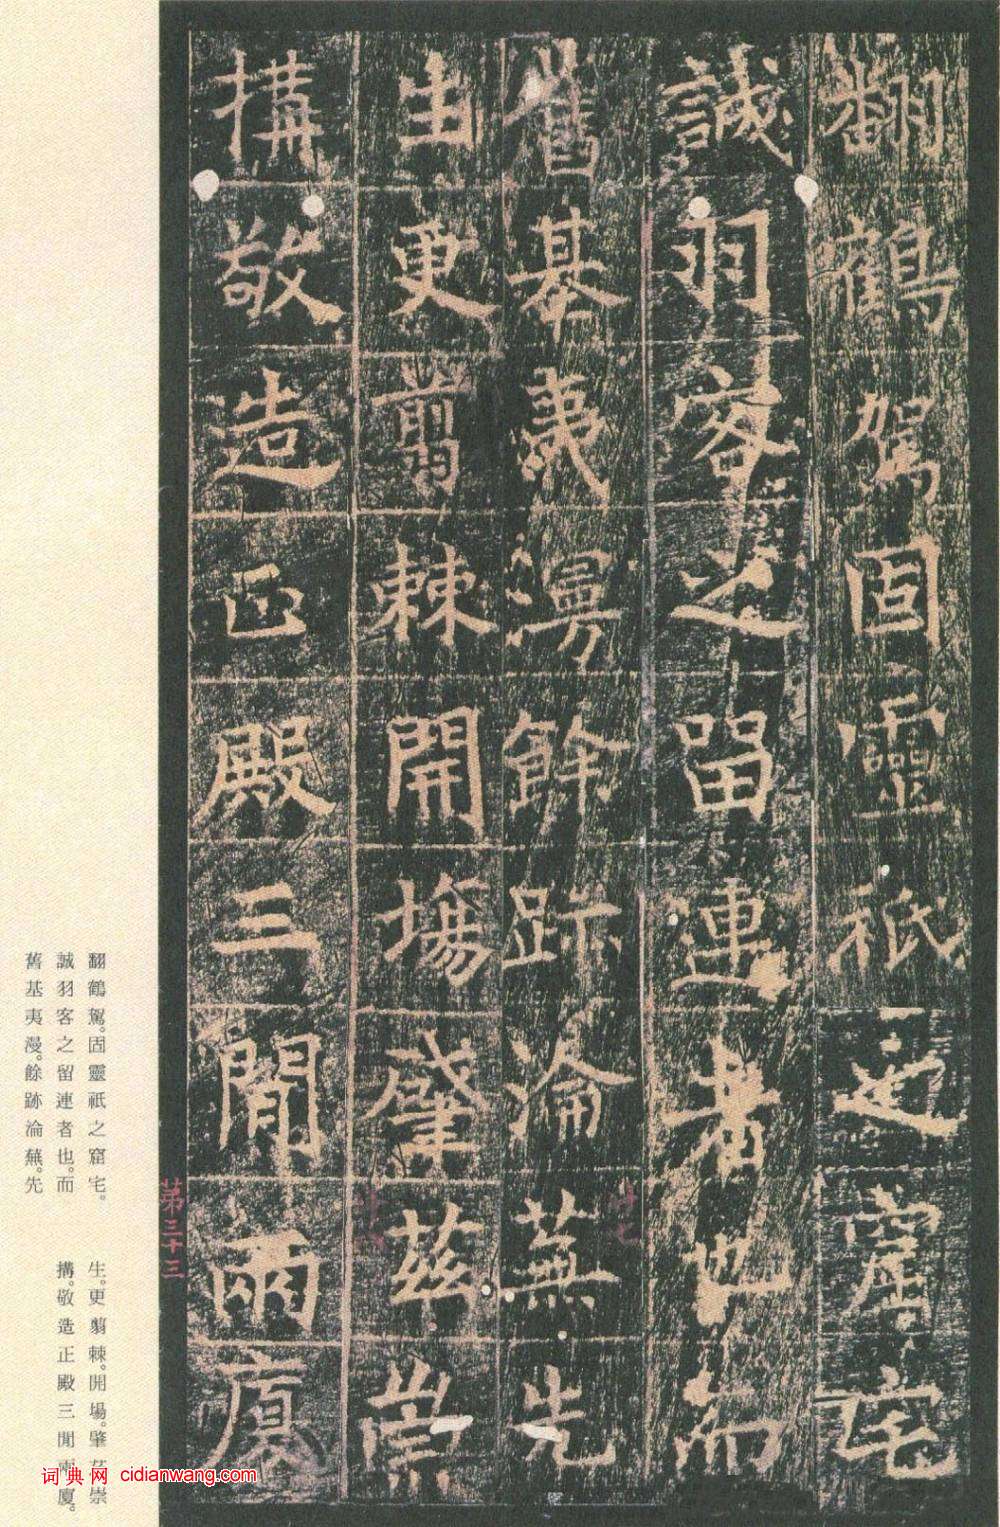 翻鶴駕固靈祇之窟宅
誠羽客之留連者也而
舊基夷漫餘跡淪蕪先
生更翦棘開場肇茲崇
搆敬造正殿三閒兩廈
廿七
廿八
第三十三
翻鶴駕。固靈祇之窟宅。
誠羽客之留連者也。而
舊基夷漫。餘跡淪蕪。先
生。更翦棘。開場。肇茲崇
搆。敬造正殿三閒兩廈。
词典网 cidianwang.com